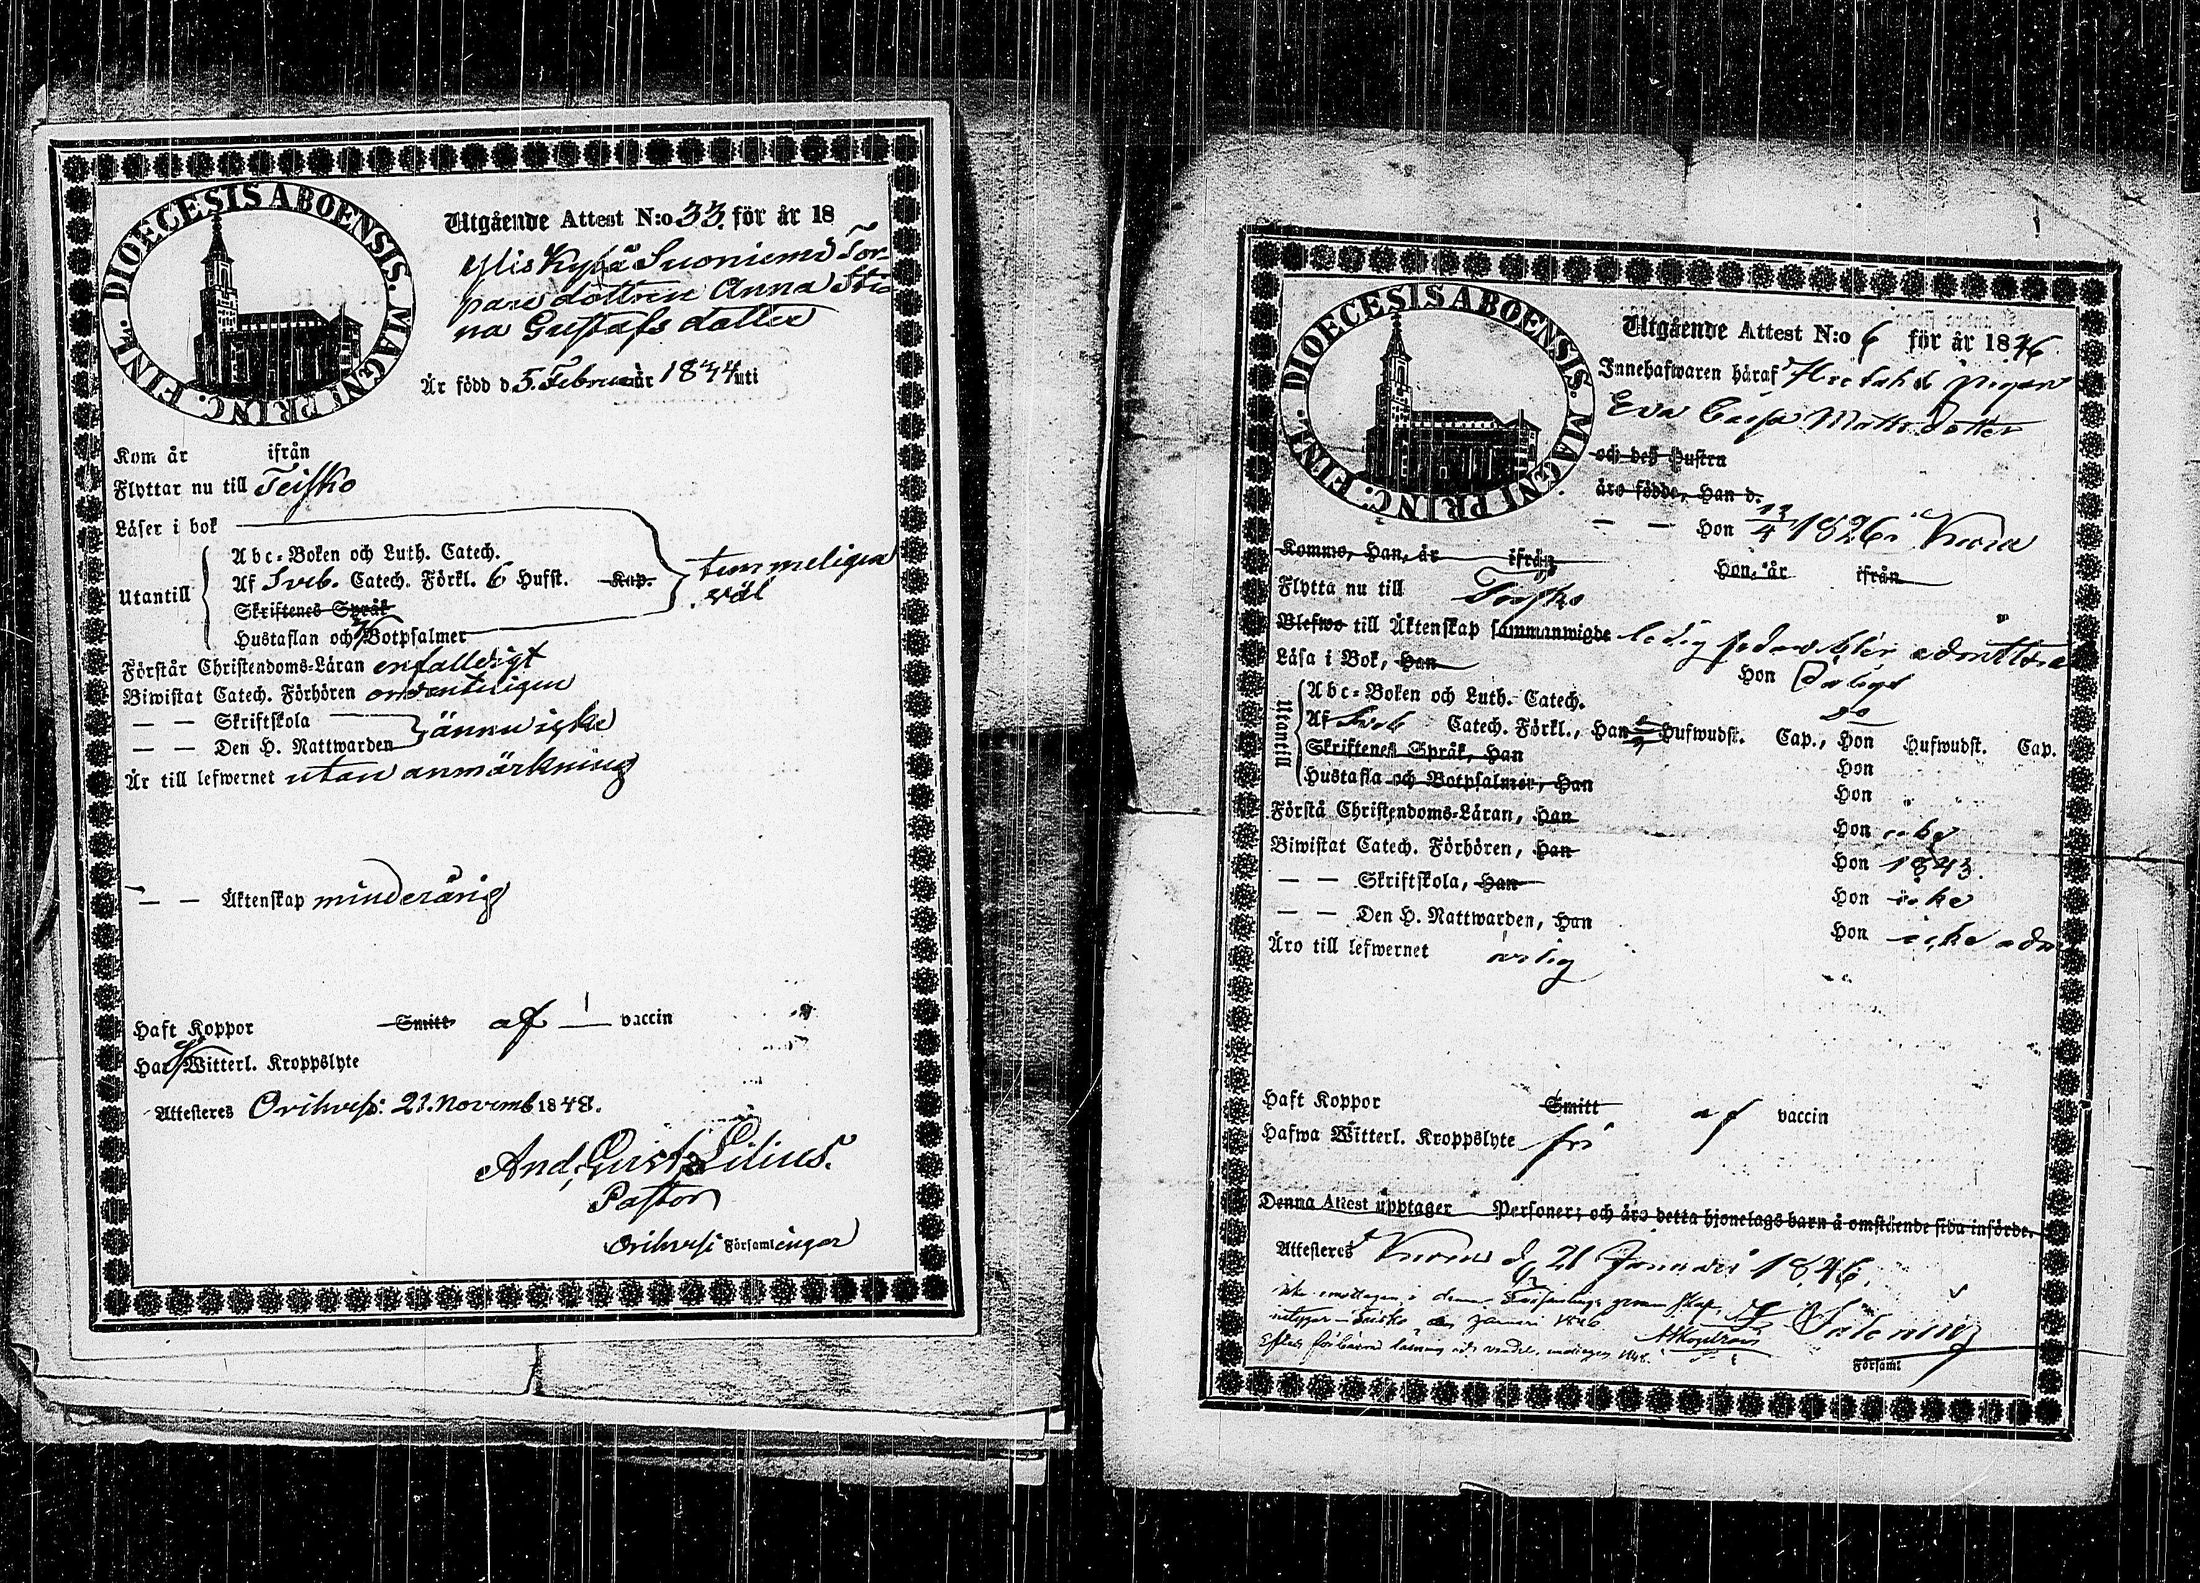 DIOECESIS ABOENSIS. MAGNI PRINC. FINL.
Utgående Attest N:o 33. för år 18
Yflis Kylä Suoniemi Tor-
pare dottren Anna Sti
na Gustafs dotter
Är född d 5. Februari år 1834 uti
Kom år ifrån
Flyttar nu till Teisko
Läser i bok
Abc-Boken och Luth. Catech.
Utantill Af Sveb. Catech. Förkl. 6 Hufst. Kap. temmeligen
Skriftenes Språk väl
Hustaflan och Botpsalmer
Förstår Christendoms-Läran enfalldigt
Biwistat Catech. Förhören ordenteligen
— — Skriftskola
— — Den H. Nattwarden ännu icke
Är till lefwernet utan anmärkning
— — Äktenskap minderårig
Haft Koppor Smitt af vaccin
Har Witterl. Kroppslyte
Attesteres Orihvesi: 21. Novemb 1848.
And. Gust. Lilius.
Pastor
Orihvesi Församlingar
DIOECESIS ABOENSIS. MAGNI PRINC. FINL.
Utgående Attest N:o 6 för år 1846
Innehafwaren häraf pigan
Eva Caisa Matts dotter
och des Hustru
äro födde, Han d.
— — Hon 13/4 1826 i
Komme, Han, år ifrån
Hon, år ifrån
Flytta nu till Teisko
Blefwo till Äktenskap sammanwigde ledig
Läsa i Bok, Han
Hon
Utantill
Abc-Boken och Luth. Catech.
Af Sveb Catech. Förkl., Han Hufwudst. Cap., Hon Hufwudst. Cap.
Skriftenes Språk, Han Hon
Hustafla och Botpsalmer, Han Hon
Förstå Christendoms-Läran, Han Hon icke
Biwistat Catech. Förhören, Han Hon 1843.
— — Skriftskola, Han Hon icke
— — Den H. Nattwarden, Han Hon icke
Äro till lefwernet ärlig
Haft Koppor Smitt af vaccin
Hafwa Witterl. Kroppslyte fri
Denna Attest upptager Personer; och äro detta hjonelags barn å omstående sida införde.
Attesteres d. 21 Januari 1846.
Teisko Januari 1846
Församl